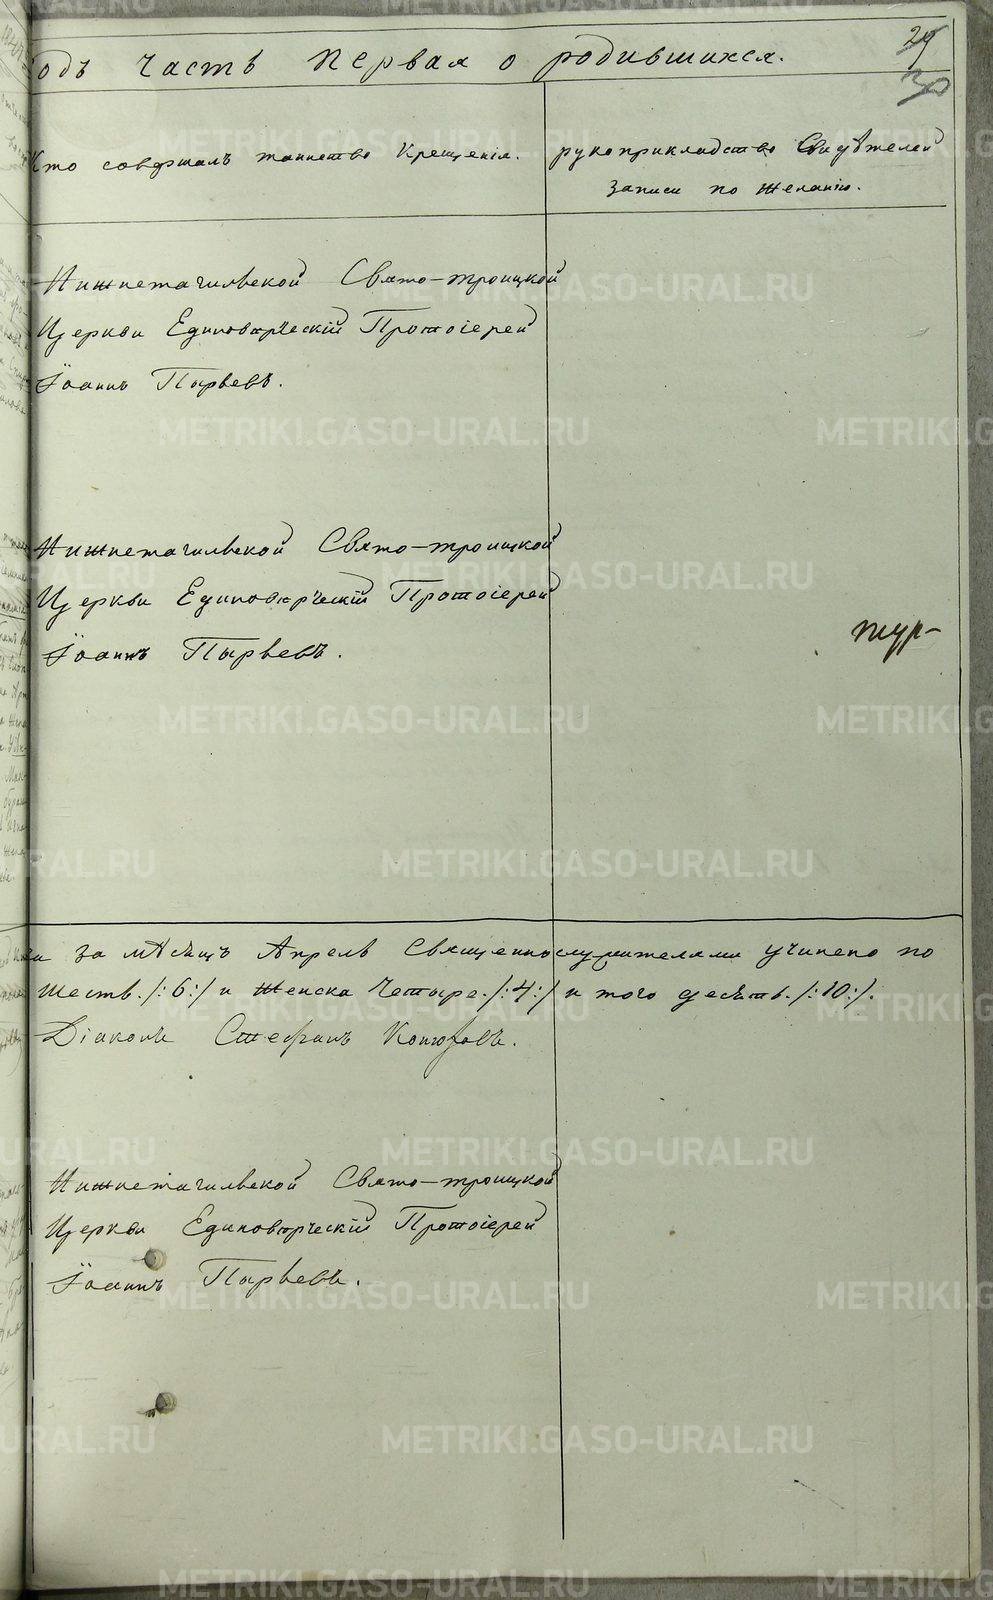 29
30
одъ часть первая о родившихся.
Кто совершалъ таинство Крещенія.
рукоприкладство Свидѣтелей
записи по желанію.
Нижнетагильской Свято-троицкой
Церкви Единовѣрческій Протоіерей
Іоаннъ Пырьевъ.
Нижнетагильской Свято-троицкой
Церкви Единовѣрческій Протоіерей
Іоаннъ Пырьевъ.
за мѣсяцъ Апрель Священнослужителями учинено по
шесть. /:6:/ и Женска Четыре. /:4:/ и того десять. /:10:/.
Діаконъ Стефанъ
Нижнетагильской Свято-троицкой
Церкви Единовѣрческій Протоіерей
Іоаннъ Пырьевъ.
METRIKI.GASO-URAL.RU